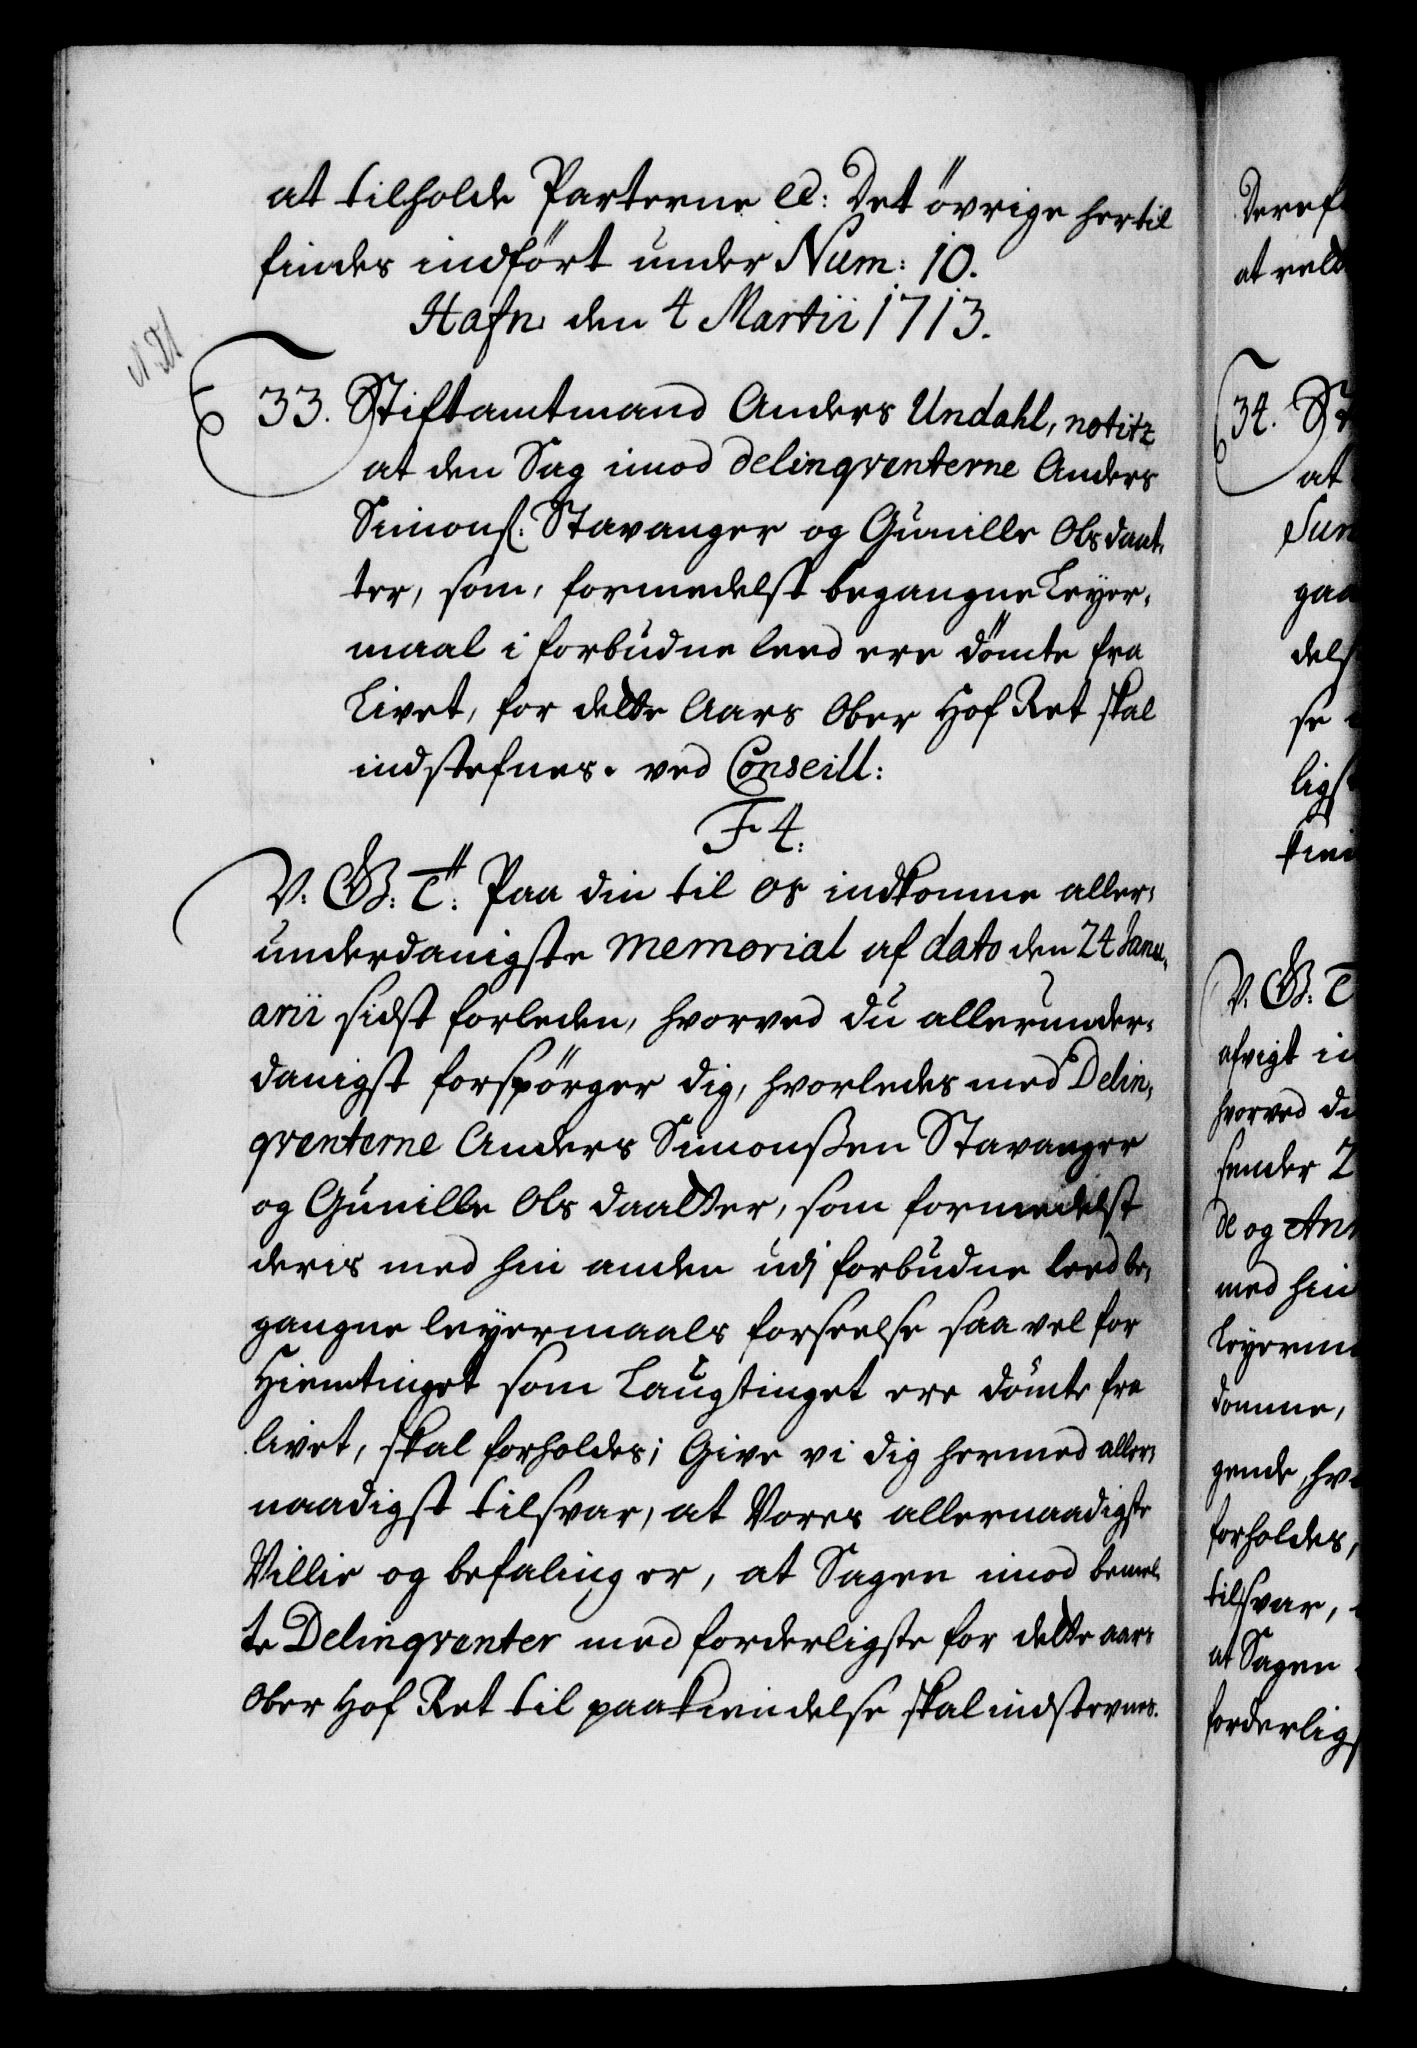 at tilholde Parterne etc: Det övrige hertil
findes indfört under Num: 10.
Hafn: den 4 Martii 1713.
33. Stiftamtmand Anders Undahl, notitz
at den Sag imod delinqventerne Anders
Simons: Stavanger og Gunille Olsdaat-
ter, som, formedelst begangne Leyer-
maal i forbudne leed ere dömte fra
Livet, for dette Aars Ober Hof Ret skal
indstefnes. ved Conseill:
F 4.
V: G: T: Paa din til os indkomne aller-
underdanigste memorial af dato den 24 Janu-
arii sidst forleden, hvorved du allerunder-
danigst forspörger dig, hvorledes med Delin-
qventerne Anders Simonßen Stavanger
og Gunille Ols daatter, som formedelst
deris med hin anden udj forbudne leed be-
gangne leyermaals forseelse saa vel for
Hiemtinget som Laugtinget ere dömte fra
livet, skal forholdes; Give vi dig hermed aller-
naadigst tilsvar, at Vores allernaadigste
Villie og befaling er, at Sagen imod bemel-
te Delinqventer med forderligste for dette aars
Ober Hof Ret til paakiendelse skal indstevnes.
at
34. St
at
gaa
dels
se
ligst
V. G: T
afvigt in
hvorved du
sender
de og An
med hin
Leyerma
domme,
gende, hv
forholdes,
tilsvar,
at Sagen
forderligs